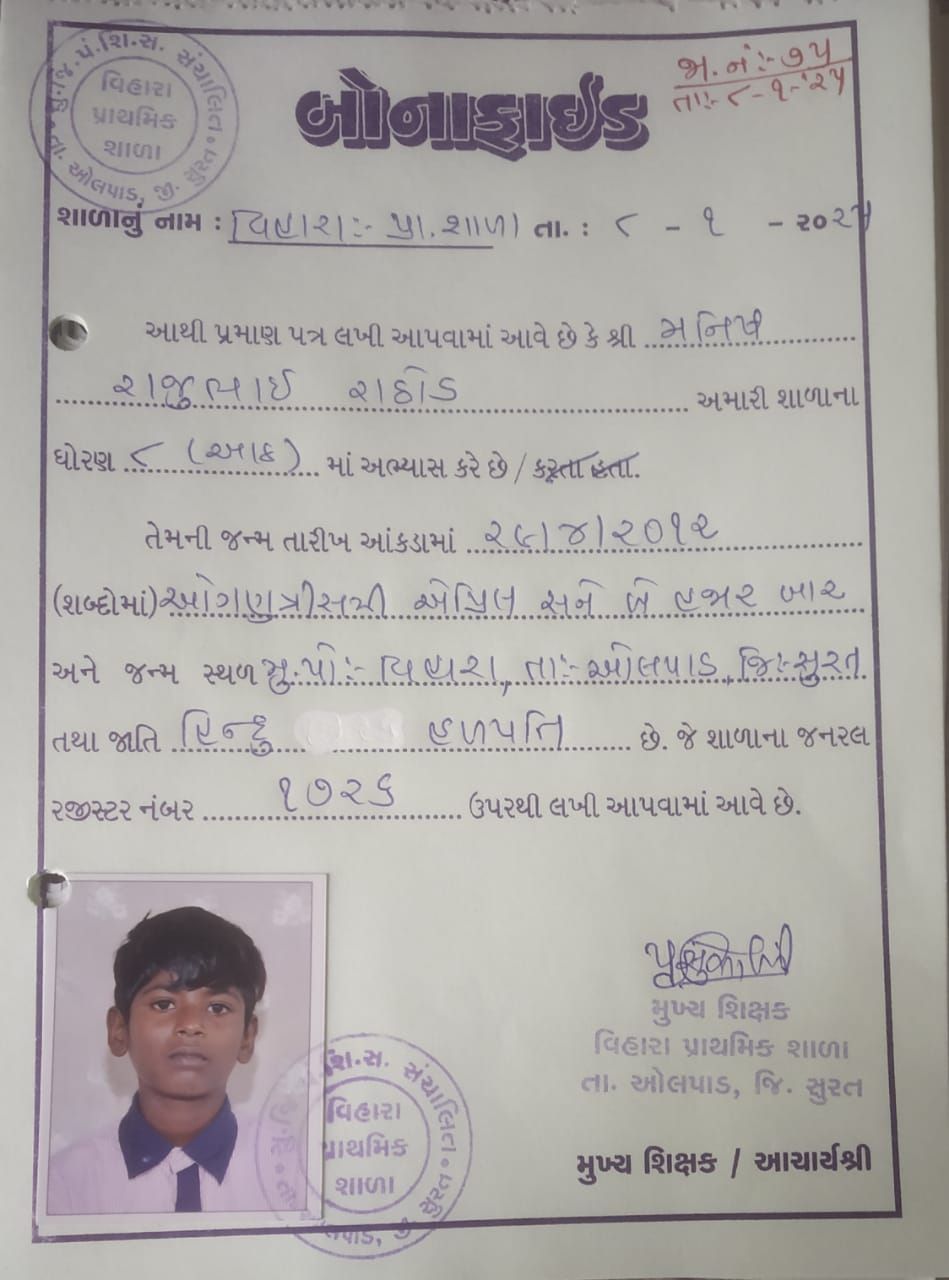 સુ.જી.પં.શિ.સ. સંચાલિત
વિહારા
પ્રાથમિક
શાળા
તા. ઓલપાડ, જી. સુરત
જા.નં:- ૭૫
તા:- ૮-૧-'૨૫
બોનાફાઈડ
શાળાનું નામ : વિહારા:- પ્રા.શાળા તા. : ૮ - ૧ - ૨૦૨૫
આથી પ્રમાણ પત્ર લખી આપવામાં આવે છે કે શ્રી મનિષ
રાજુભાઈ રાઠોડ અમારી શાળાના
ધોરણ ૮ (આઠ) માં અભ્યાસ કરે છે / કરતા હતા.
તેમની જન્મ તારીખ આંકડામાં ૨૯/૪/૨૦૧૨
(શબ્દોમાં) ઓગણત્રીસમી એપ્રિલ સને બે હજાર બાર
અને જન્મ સ્થળ મુ.પો:- વિહારા, તા:- ઓલપાડ, જિ:- સુરત
તથા જાતિ હિન્દુ હળપતિ છે. જે શાળાના જનરલ
રજીસ્ટર નંબર ૧૭૨૬ ઉપરથી લખી આપવામાં આવે છે.
મુખ્ય શિક્ષક
વિહારા પ્રાથમિક શાળા
તા. ઓલપાડ, જિ. સુરત
શિ.સ. સંચાલિત
વિહારા
પ્રાથમિક
શાળા
જી. સુરત
મુખ્ય શિક્ષક / આચાર્યશ્રી